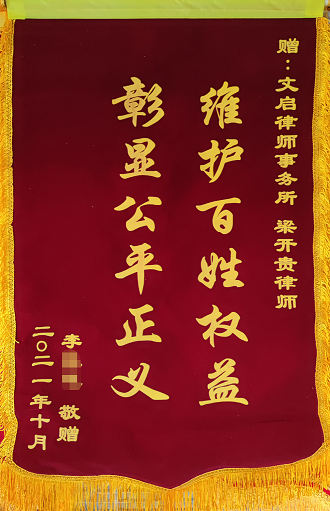 赠：文启律师事务所 梁开贵律师
维护百姓权益
彰显公平正义
李 敬赠
二〇二一年十月